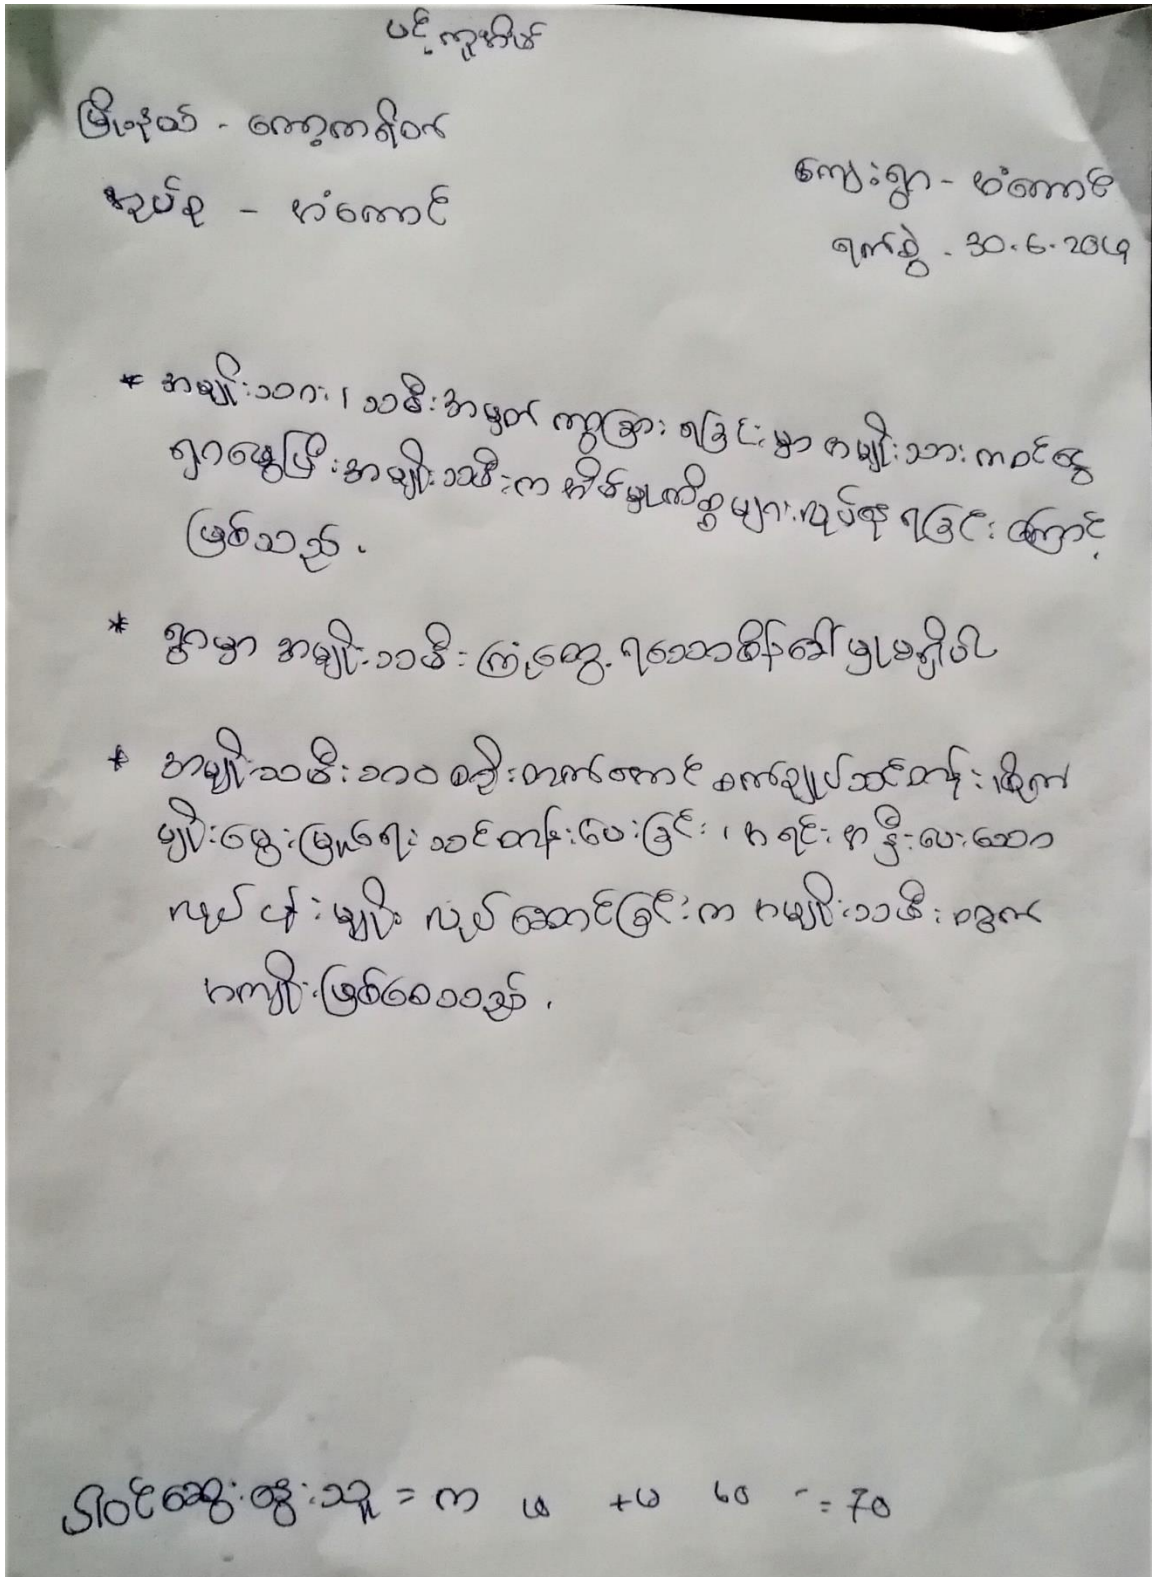 ပင့်ကူအိမ်
မြို့နယ် - ကော့ကရိတ်
ကျေးရွာ - အံကောင်
အုပ်စု - အံကောင်
ရက်စွဲ - 30.6.20
* အမျိုးသား၊ သမီးအမှတ် ကွာခြား ရခြင်းမှာ အမျိုးသားကဝင်ငွေ
ရှာဖွေပြီးအမျိုးသမီးကအိမ်မှုကိစ္စများလုပ်စုရခြင်းကြောင့်
ဖြစ်သည်.
* ရွာမှာ အမျိုးသမီးကြုံတွေ့ရသောစိန်ခေါ်မှုမရှိပါ
* အမျိုးသမီးဘဝစဦးတက်အောင် စက်ချုပ်သင်တန်း၊စိုက်
မျိုးမွေးမြူရေးသင်တန်းပေးခြင်း၊အရင်းအနှီးပေးသော
လုပ်ငန်းမျိုး လုပ်ဆောင်ခြင်းက အမျိုးသမီးတွက်
အကျိုးဖြစ်စေသည်.
ပါဝင်ဆွေးနွေးသူ = က +မ 60 = 70